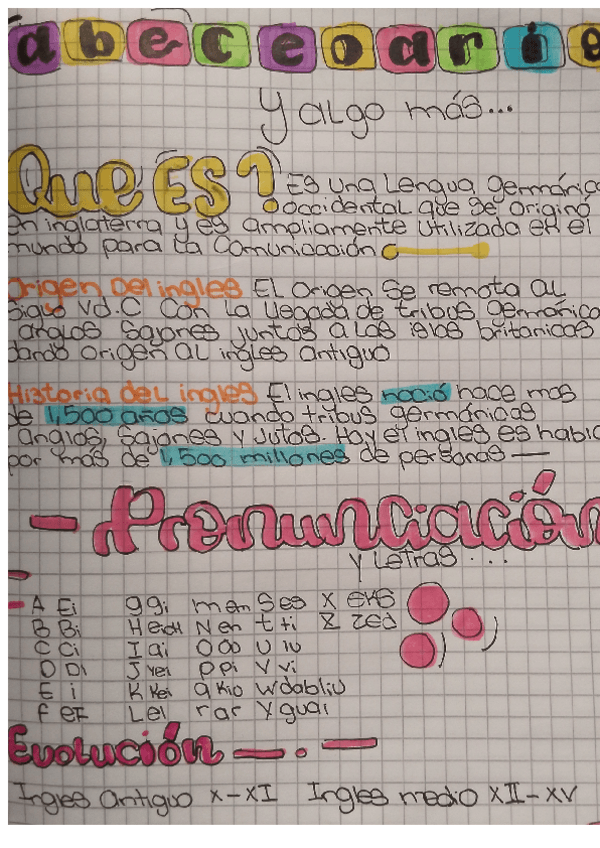 abecedario
Y algo más...
Que ES?
Es una Lengua germánica
occidental que se originó
en inglaterra y es ampliamente utilizada en el
mundo para la comunicación
Origen Del ingles El origen se remota al
siglo Vd.C con la llegada de tribus germánica
anglos sajones juntos a las islas britanicas
dando origen al ingles antiguo
Historia del ingles El ingles nació hace mas
de 1,500 años cuando tribus germánicas
anglos, sajones y jutos. Hoy el ingles es habla
por más de 1,500 millones de personas
- Pronunciación
y Letras...
A Ei ggi m em S es X eks
B Bi H eich N en t ti Z zed
C Ci I ai O ou U iu
D Di J yei p pi V vi
E i K kei q kiu W dabliu
F eF L el r ar Y guai
Evolución -.-
Ingles antiguo X-XI Ingles medio XII-XV